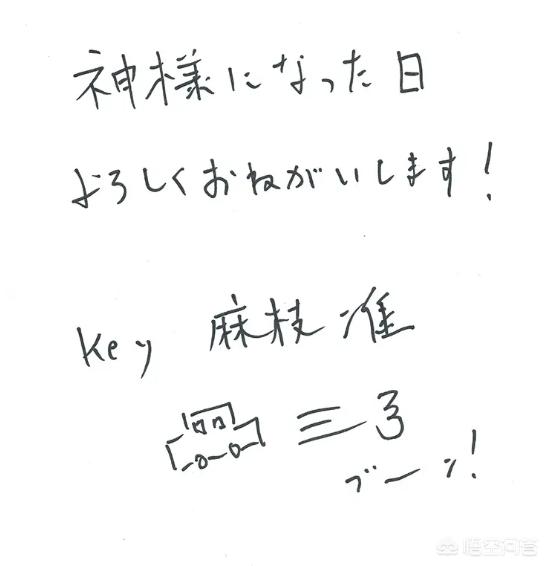 神様になった日
よろしくおねがいします!
Key 麻枝准
三3
ブーン!
悟空问答